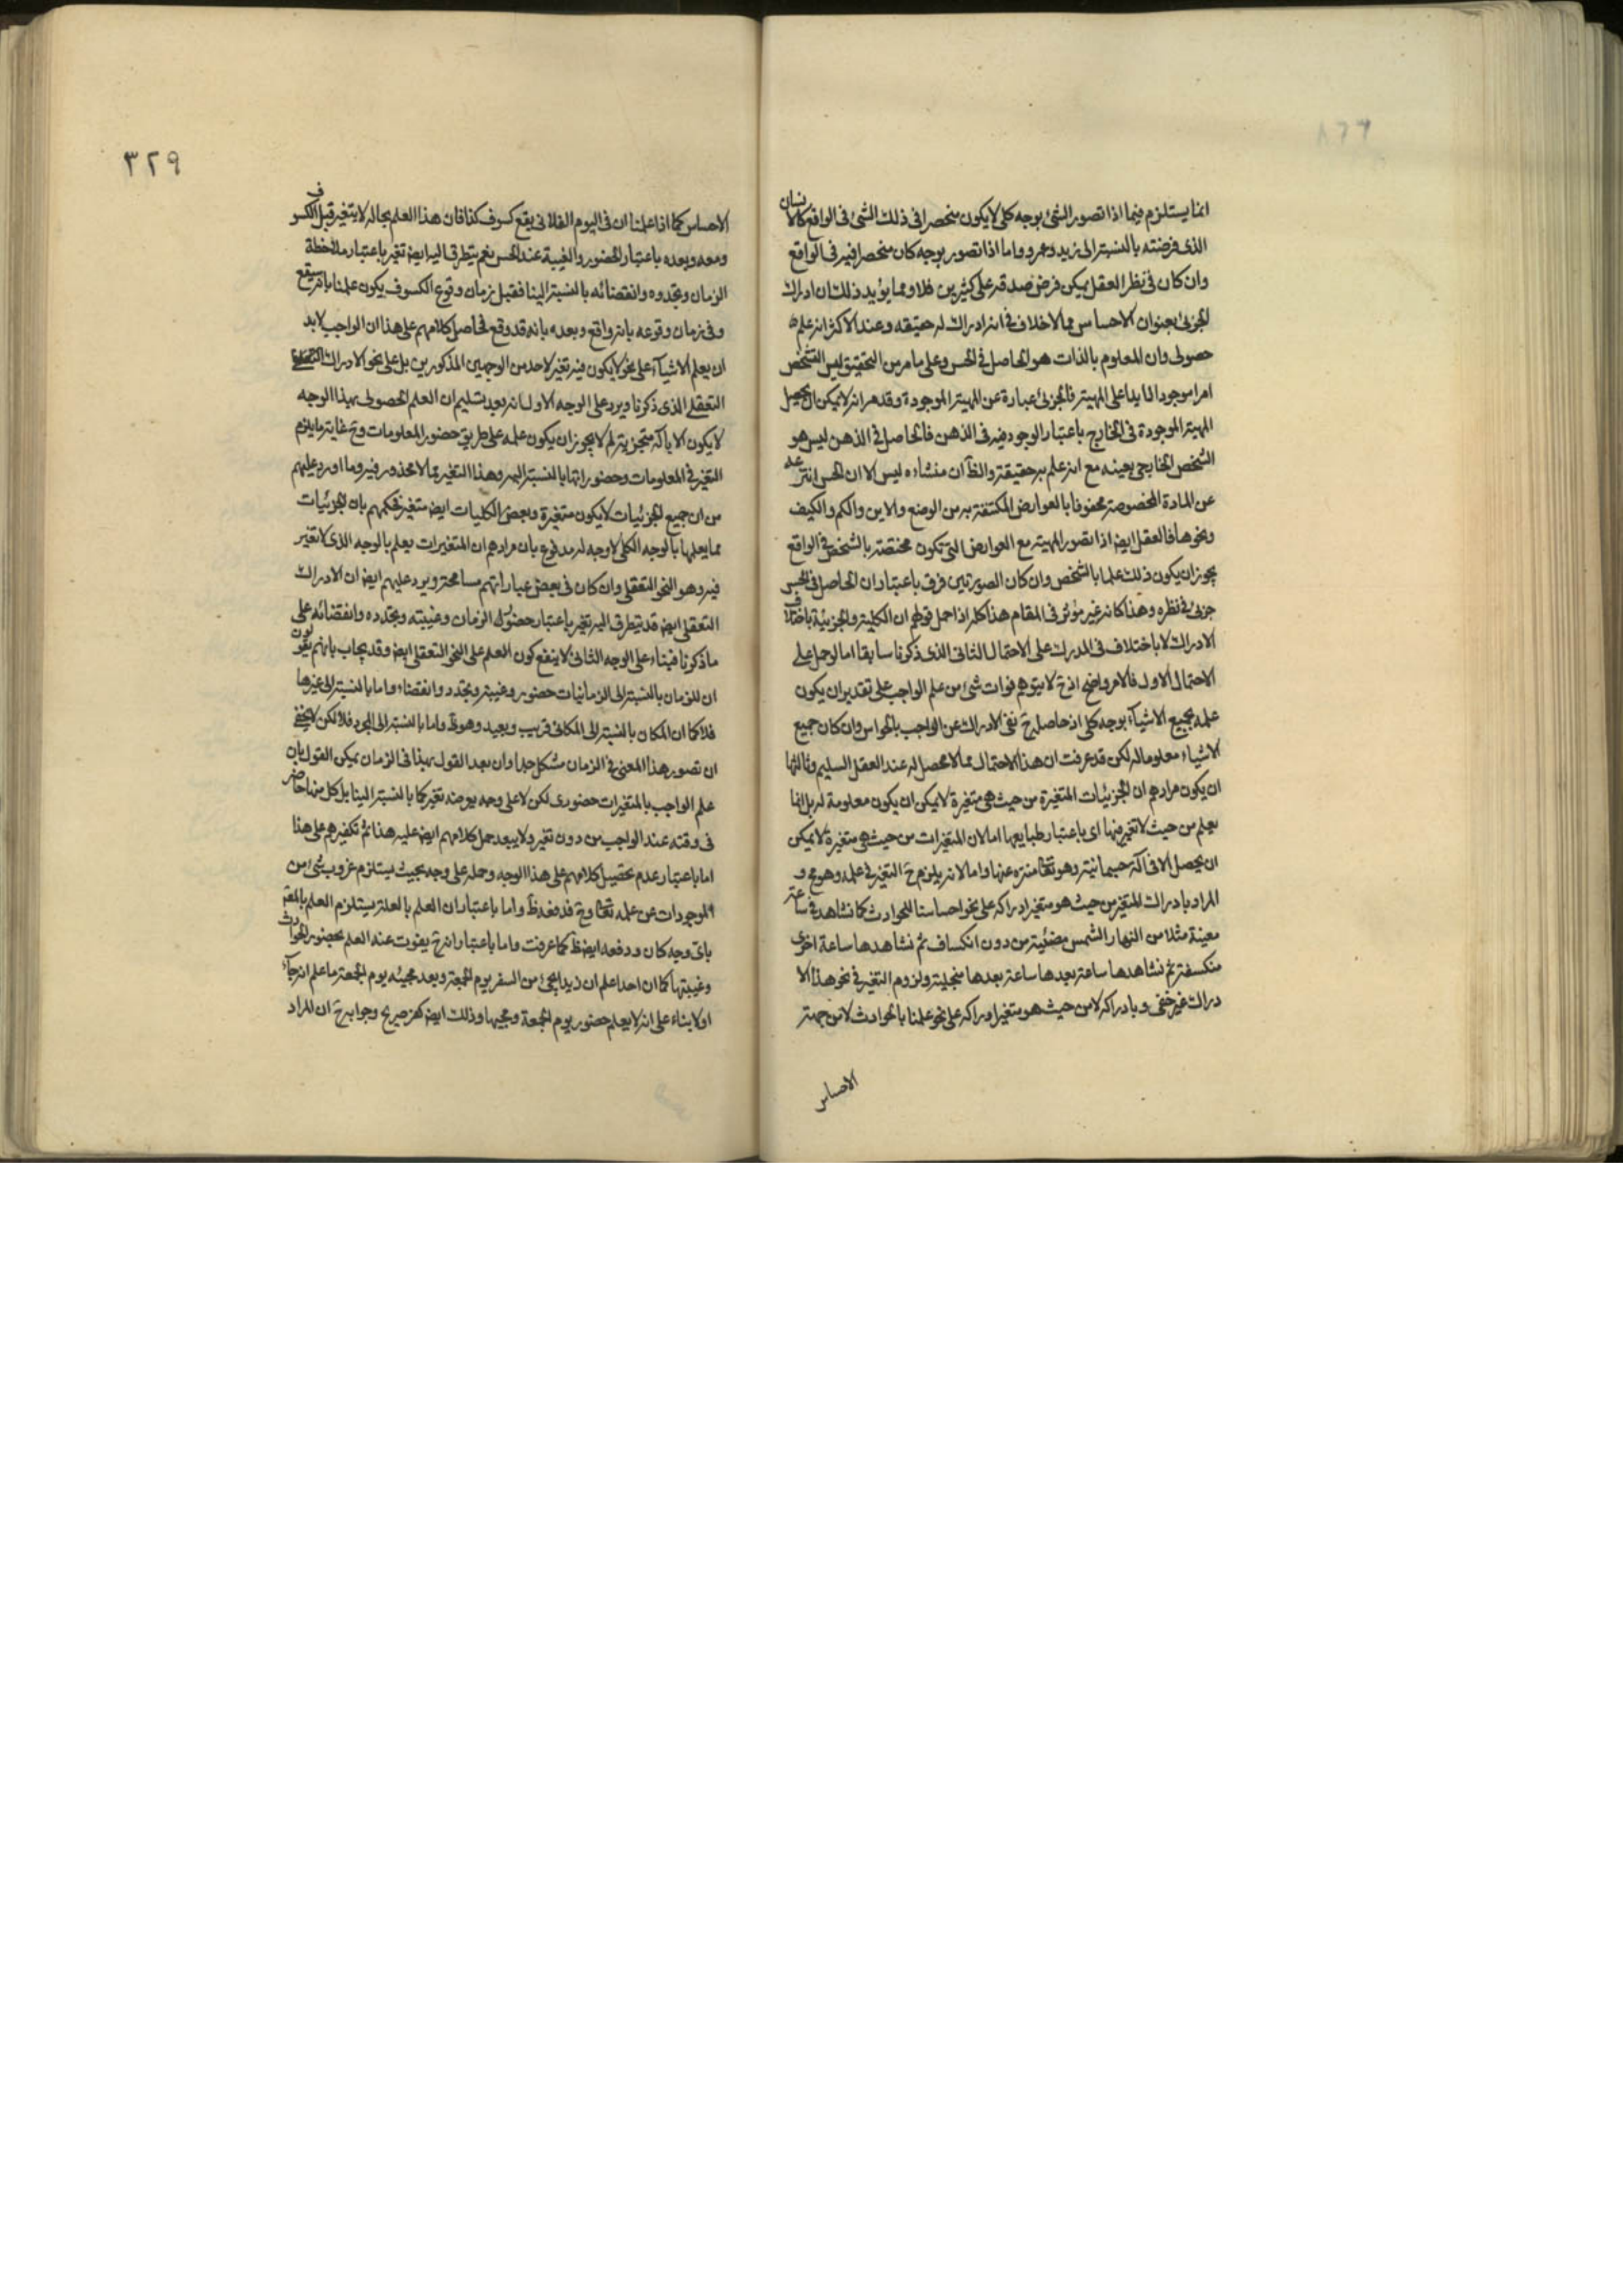 انما يستلزم فيما اذا تصور الشئ بوجه كلى لا يكون منحصرا فى ذلك الشئ فى الواقع كالانسان
الذى فرضته بالنسبة الى زيد وعمرو واما اذا تصور بوجه كان منحصرا فيه فى الواقع
وان كان فى نظر العقل يمكن فرض صدقه على كثيرين فلا ومما يؤيد ذلك ان ادراك
الجزئى بعنوان الاحساس مما لا خلاف فى انه ادراك له حقيقه وعند الاكثر انه علم
حصولى وان المعلوم بالذات هو الحاصل فى الحس وعلى ما مر من التحقيق ليس التشخص
امرا موجودا زايدا على المهية فالجزئى عبارة عن المهية الموجودة وقد مر انه لا يمكن ان يحصل
المهية الموجودة فى الخارج باعتبار الوجود فيه فى الذهن فالحاصل فى الذهن ليس هو
الشخص الخارجى بعينه مع انه علم به حقيقة والظ ان منشاءه ليس الا ان الحس انتزعه
عن المادة المخصوصة محفوفا بالعوارض المكتنفة به من الوضع والاين والكم والكيف
ونحوها فالعقل ايض اذا تصور المهية مع العوارض التى تكون مختصة بالشخص فى الواقع
يجوز ان يكون ذلك علما بالشخص وان كان الصورتين فرق باعتبار ان الحاصل فى الحس
جزئى فى نظره وهذا كانه غير مؤثر فى المقام هذا كله اذا حمل قولهم ان الكلية والجزئية باختلاف
الادراك لا باختلاف فى المدرك على الاحتمال الثانى الذى ذكرنا سابقا اما لو حمل على
الاحتمال الاول فالامر واضح اذ ح لا يتوهم فوات شئ من علم الواجب على تقدير ان يكون
علمه بجميع الاشياء بوجه كلى اذ حاصله ح نفى الادراك عن الواجب بالحواس وان كان جميع
الاشياء معلوما له لكن قد عرفت ان هذا الاحتمال مما لا محصل له عند العقل السليم وثالثها
ان يكون مرادهم ان الجزئيات المتغيرة من حيث هى متغيرة لا يمكن ان يكون معلومة له بل انما
يعلم من حيث لا تغير فيها اى باعتبار طبايعها اما لان المتغيرات من حيث هى متغيرة لا يمكن
ان يحصل الا فى آلة جسمانية وهو تعالى منزه عنها واما لانه يلزم ح التغير فى علمه وهو مح و
المراد بادراك المتغير من حيث هو متغير ادراكه على نحو احساسنا للحوادث كما نشاهد فى ساعة
معينة مثلا من النهار الشمس مضئية من دون انكساف ثم نشاهدها ساعة اخرى
منكسفة ثم نشاهدها ساعة بعدها ساعة بعدها منجلية ولزوم التغير فى نحو هذا الا
دراك غير خفى و بادراكه لا من حيث هو متغير ادراكه على نحو علمنا بالحوادث لا من جهة
الاحساس
٣٢٩
الاحساس كما اذا علمنا ان فى اليوم الفلانى يقع كسوف كذا فان هذا العلم بحاله لا يتغير قبل الكسوف
ومعه وبعده باعتبار الحضور والغيبة عند الحس نعم يتطرق اليه ايض تغير باعتبار ملاحظة
الزمان وتجدده وانقضائه بالنسبة الينا فقبل زمان وقوع الكسوف يكون علمنا بانه سيقع
وفى زمان وقوعه بانه واقع وبعده بانه قد وقع فحاصل كلامهم على هذا ان الواجب لا بد
ان يعلم الاشياء على نحو لا يكون فيه تغير لاحد من الوجهين المذكورين بل على نحو الادراك
التعقلى الذى ذكرنا ويرد على الوجه الاول انه بعد تسليم ان العلم الحصولى بهذا الوجه
لا يكون الا بآلة متجزية لم لا يجوز ان يكون علمه على طريق حضور المعلومات وح غاية ما يلزم
التغير فى المعلومات وحضوراتها بالنسبة اليه وهذا التغير مما لا محذور فيه وما اورد عليهم
من ان جميع الجزئيات لا يكون متغيرة وبعض الكليات ايض متغير فحكمهم بان الجزئيات
مما يعلمها بالوجه الكلى لا وجه له مدفوع بان مرادهم ان المتغيرات يعلم بالوجه الذى لا تغير
فيه وهو النحو التعقلى وان كان فى بعض عباراتهم مسامحة ويرد عليهم ايض ان الادراك
التعقلى ايض قد يتطرق اليه تغير باعتبار حضور ذلك الزمان وغيبته وتجدده وانقضائه على
ما ذكرنا فبناء على الوجه الثانى لا ينفع كون العلم على النحو التعقلى ايض وقد يجاب بانهم يقولون
ان للزمان بالنسبة الى الزمانيات حضور وغيبة وتجدد وانقضاء واما بالنسبة الى غيرها
فلا كما ان المكان بالنسبة الى المكانى قريب وبعيد وهو واما بالنسبة الى المجرد فلا لكن لا يخفى
ان تصور هذا المعنى فى الزمان مشكل جدا وان بعد القول بهذا فى الزمان يمكن القول بان
علم الواجب بالمتغيرات حضورى لكن لا على وجه يوجد تغير كما بالنسبة الينا بل كل منها حاضر
فى وقته عند الواجب من دون تغير ولا يبعد حمل كلامهم ايض عليه هذا ثم تكفيرهم على هذا
اما باعتبار عدم تحصيل كلامهم على هذا الوجه وحمله على وجه بحيث يستلزم عزوب شئ من
الموجودات عن علمه تعالى وح فدفعه ظ واما باعتبار ان العلم بالعلة يستلزم العلم بالمعلول
باى وجه كان ودفعه ايض ظ كما عرفت واما باعتبار انه ح يفوت عنه العلم بحضور الحوادث
وغيبتها كما ان احدا علم ان زيدا يجئ من السفر يوم الجمعة وبعد مجيئه يوم الجمعة ما علم انه جاء
اولا بناء على انه لا يعلم حضور يوم الجمعة ومجيئها وذلك ايض كفر صريح وجوابه ح ان المراد